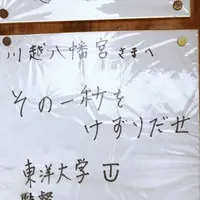 川越八幡宮さまへ
その一秒を
けずりだせ
東洋大学
監督